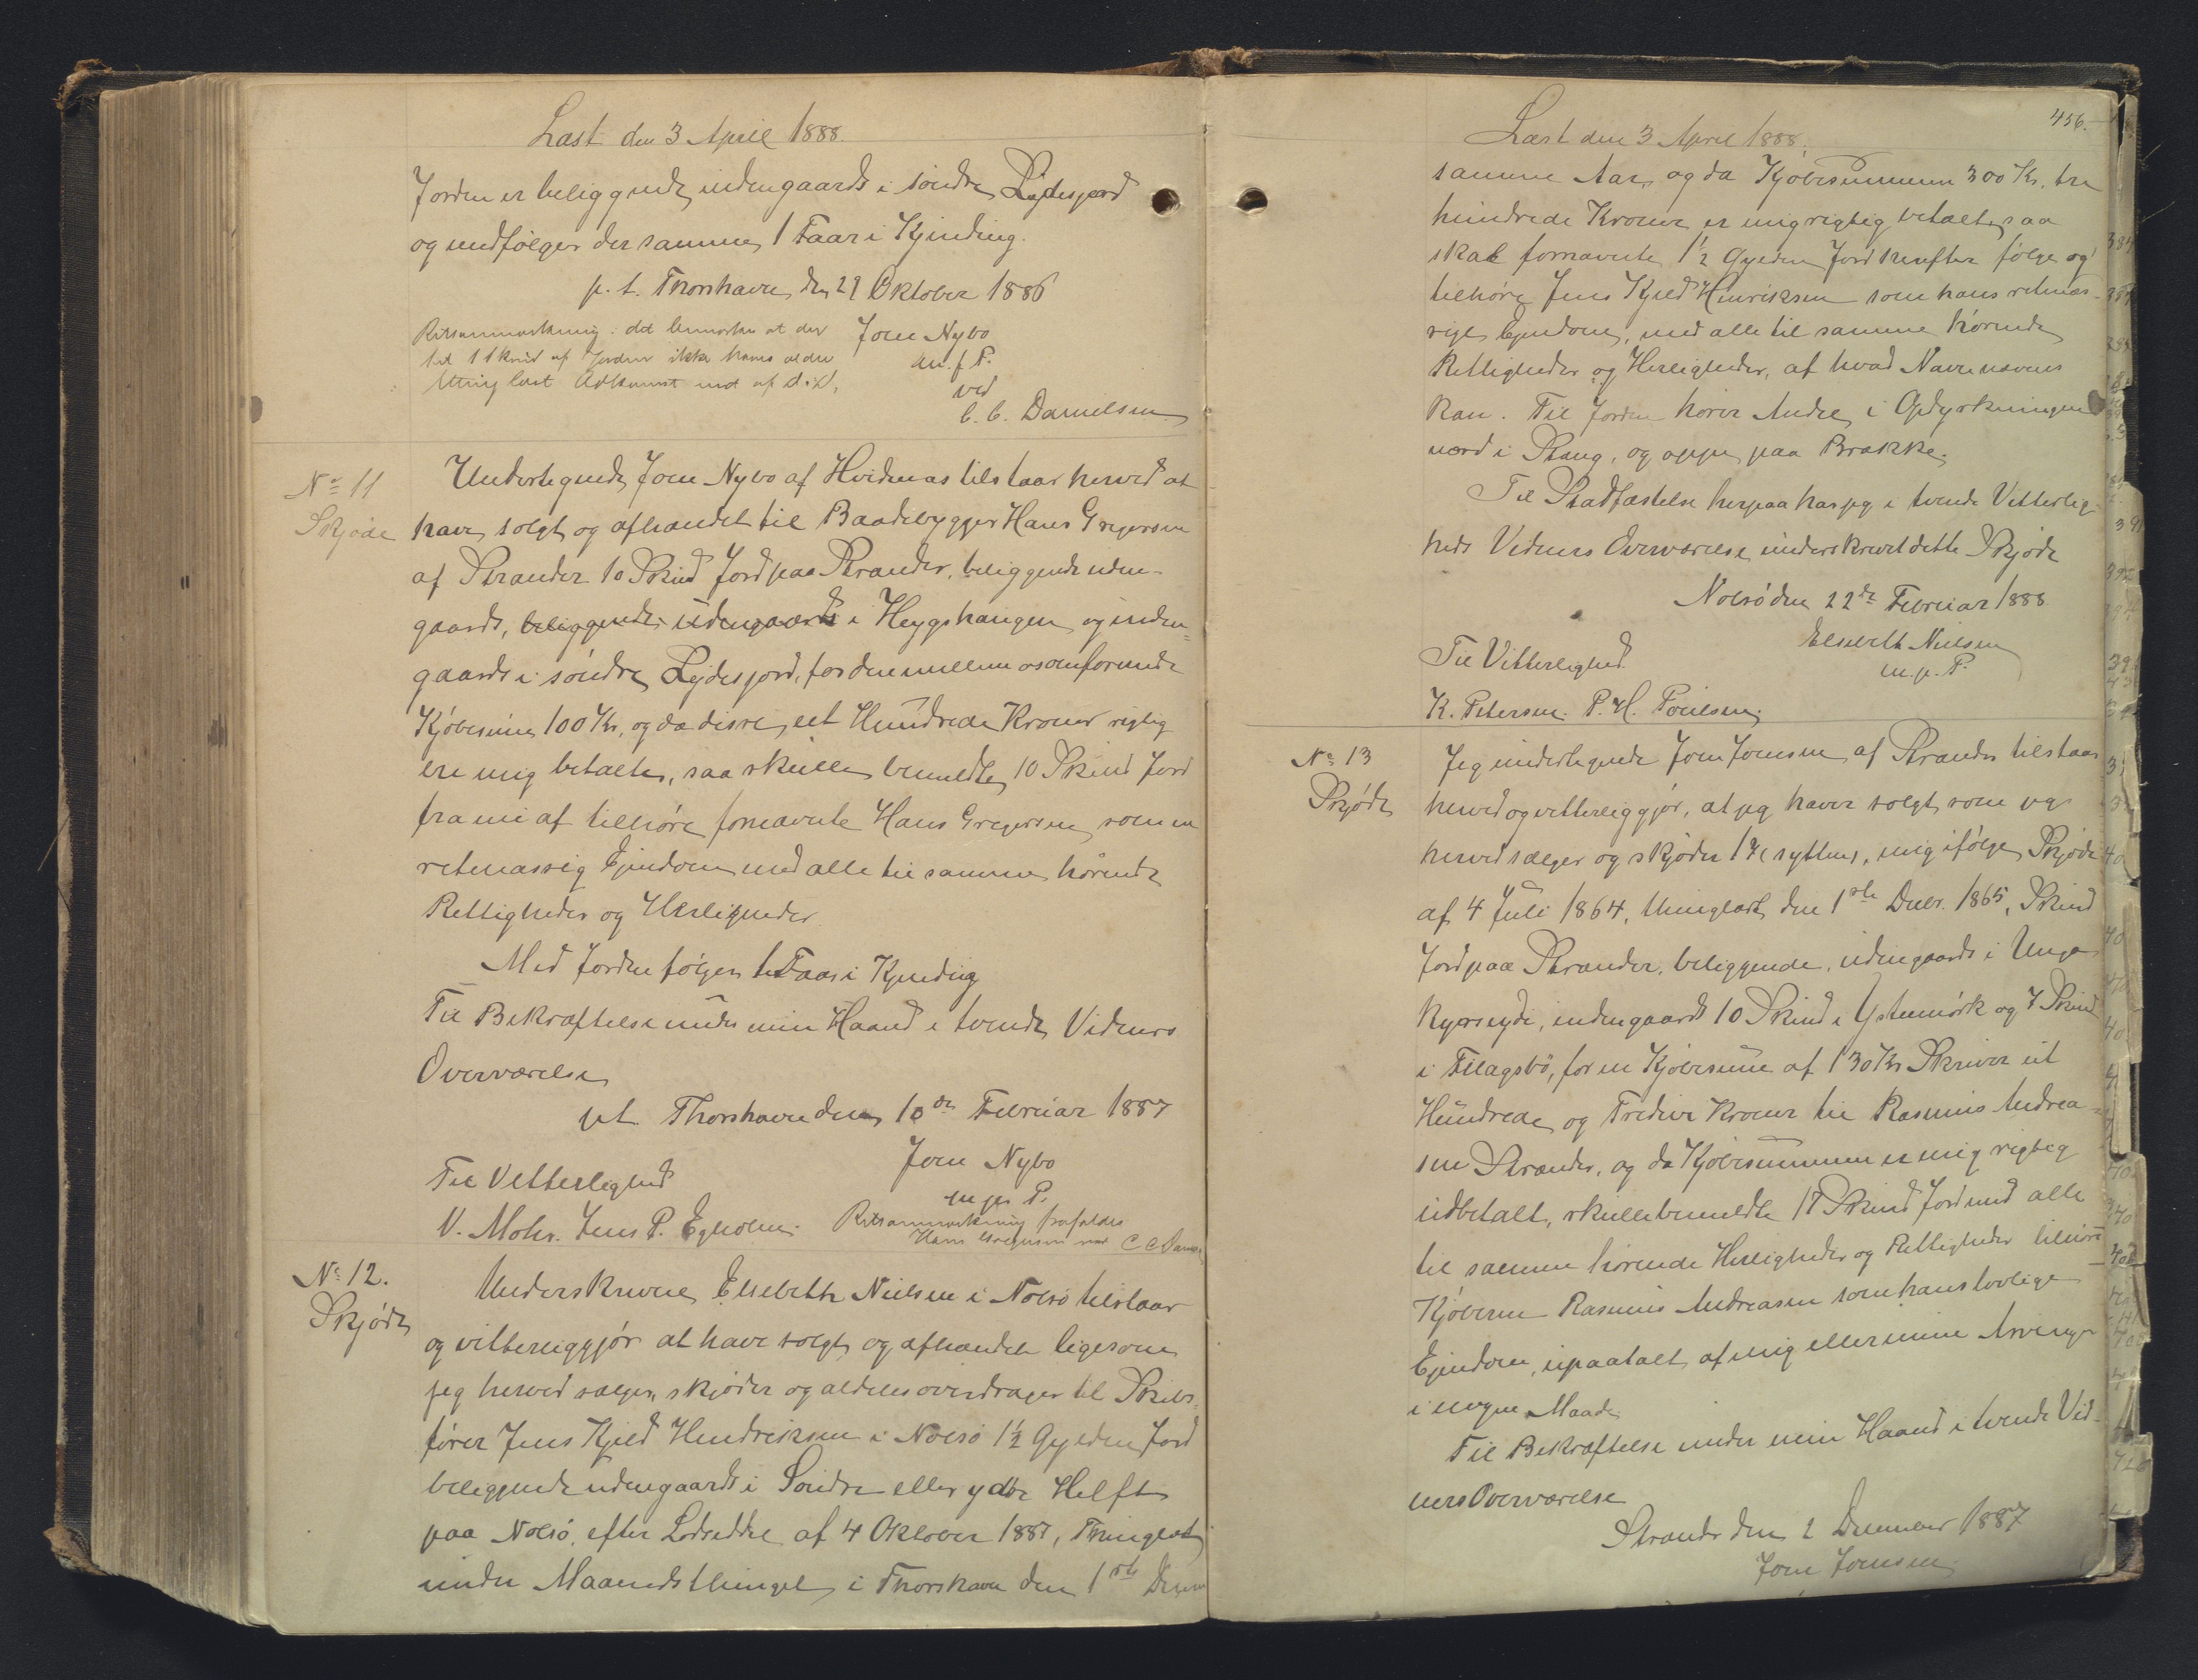 Læst den 3 April 1888.
Jorden er beliggende indengaards i søndre Lydesjord
og medfølger der samme 1 Faar i Kjending.
p. t. Thorshavn, den 29 Oktober 1886
Retsanmærkning: det bemærkes at der Joen Nybo
til 1 Skind af Jorden ikke haves ældre m. f. P.
thinglæst Adkomst end af d. D. ved
C. C. Danielsen
No 11 Undertegnede Joen Nybo af Hvidenæs tilstaar herved at
Skjøde have solgt og afhændet til Baadebygger Hans Gregersen
af Strænder 10 Skind Jord paa Strænder, beliggende uden-
gaards, beliggende udengaards i Heygshaugen og inden-
gaards i søndre Lydesjord, for den mellem os omforenede
Kjøbesum 100 Kr, og da disse, eet Hundrede Kroner rigtig
ere mig betalte, saa skulle bemeldte 10 Skind Jord
fra nu af tilhøre fornævnte Hans Gregersen, som en
retmæssig Ejendom med alle til samme hørende
Rettigheder og Herligheder
Med Jorden følger et Faar i Kjending
Til Bekræftelse under min Haand i tvende Vidners
Overværelse
pt. Thorshavn den 10de Februar 1887
Til Vitterlighed Joen Nybo
m. p. P.
V. Mohr. Jens P. Egholm. Retsanmærkning frafaldes
Hans Gregersen ved C C Daniels
No 12. Underskrevne Elsebeth Nielsen i Nolsø tilstaar
Skjøde og vitterliggjør at have solgt og afhændet ligesom
jeg herved sælger, skjøder og aldeles overdrager til Skibs-
fører Jens Kjeld Hendriksen i Nolsø 1½ Gylden Jord
beliggende udengaards i Søndre eller ydre Helft
paa Nolsø, efter Lodseddel af 4 Oktober 1887, Thinglæst
under Maanedsthinget i Thorshavn den 1ste Decem
456.
Læst den 3 April 1888.
samme Aar, og da Kjøbesummen 300 Kr. tre
hundrede Kroner er mig rigtig betalt, saa
skal fornævnte 1½ Gylden Jord herefter følge og
tilhøre Jens Kjeld Hinriksen som hans retmæs-
sige Ejendom, med alle til samme hørende
Rettigheder og Herligheder, af hvad Navn nævnes
kan. Til Jorden hører Andel i Opdyrkningen
nord i Stang, og oppe paa Brække.
Til Stadfæstelse herpaa har jeg i tvende Vitterlig-
heds Vidners Overværelse underskrevet dette Skjøde
Nolsø den 22de Februar 1888
Elsebeth Nielsen
Til Vitterlighed m. p. P.
K. Petersen. P. H. Poulsen.
No 13 Jeg undertegnede Joen Joensen af Strænder tilstaar
Skjøde herved og vitterliggjør, at jeg haver solgt, som jeg
herved sælger og skjøder 17 (sytten), mig ifølge Skjøde
af 4 Juli 1864, thinglæst den 1ste Decbr. 1865, Skind
Jord paa Strænder, beliggende, udengaards i Unga
kyrsyde, indengaards 10 Skind i Ystemørk og 7 Skind
i Fllagsbø, for en Kjøbesum af 130 Kr Skriver eet
Hundrede og Tredive Kroner til Rasmus Andrea-
sen Strænder, og da Kjøbesummen er mig rigtig
udbetalt, skulle bemeldte 17 Skind Jord med alle
til samme hørende Herligheder og Rettigheder tilhøre
Kjøberen Rasmus Andreasen som hans lovlige
Ejendom, upaatalt af mig eller mine Arvinger
i nogen Maade.
Til Bekræftelse under min Haand i tvende Vid-
ners Overværelse
Strænder den 2 December 1887
Joen Joensen